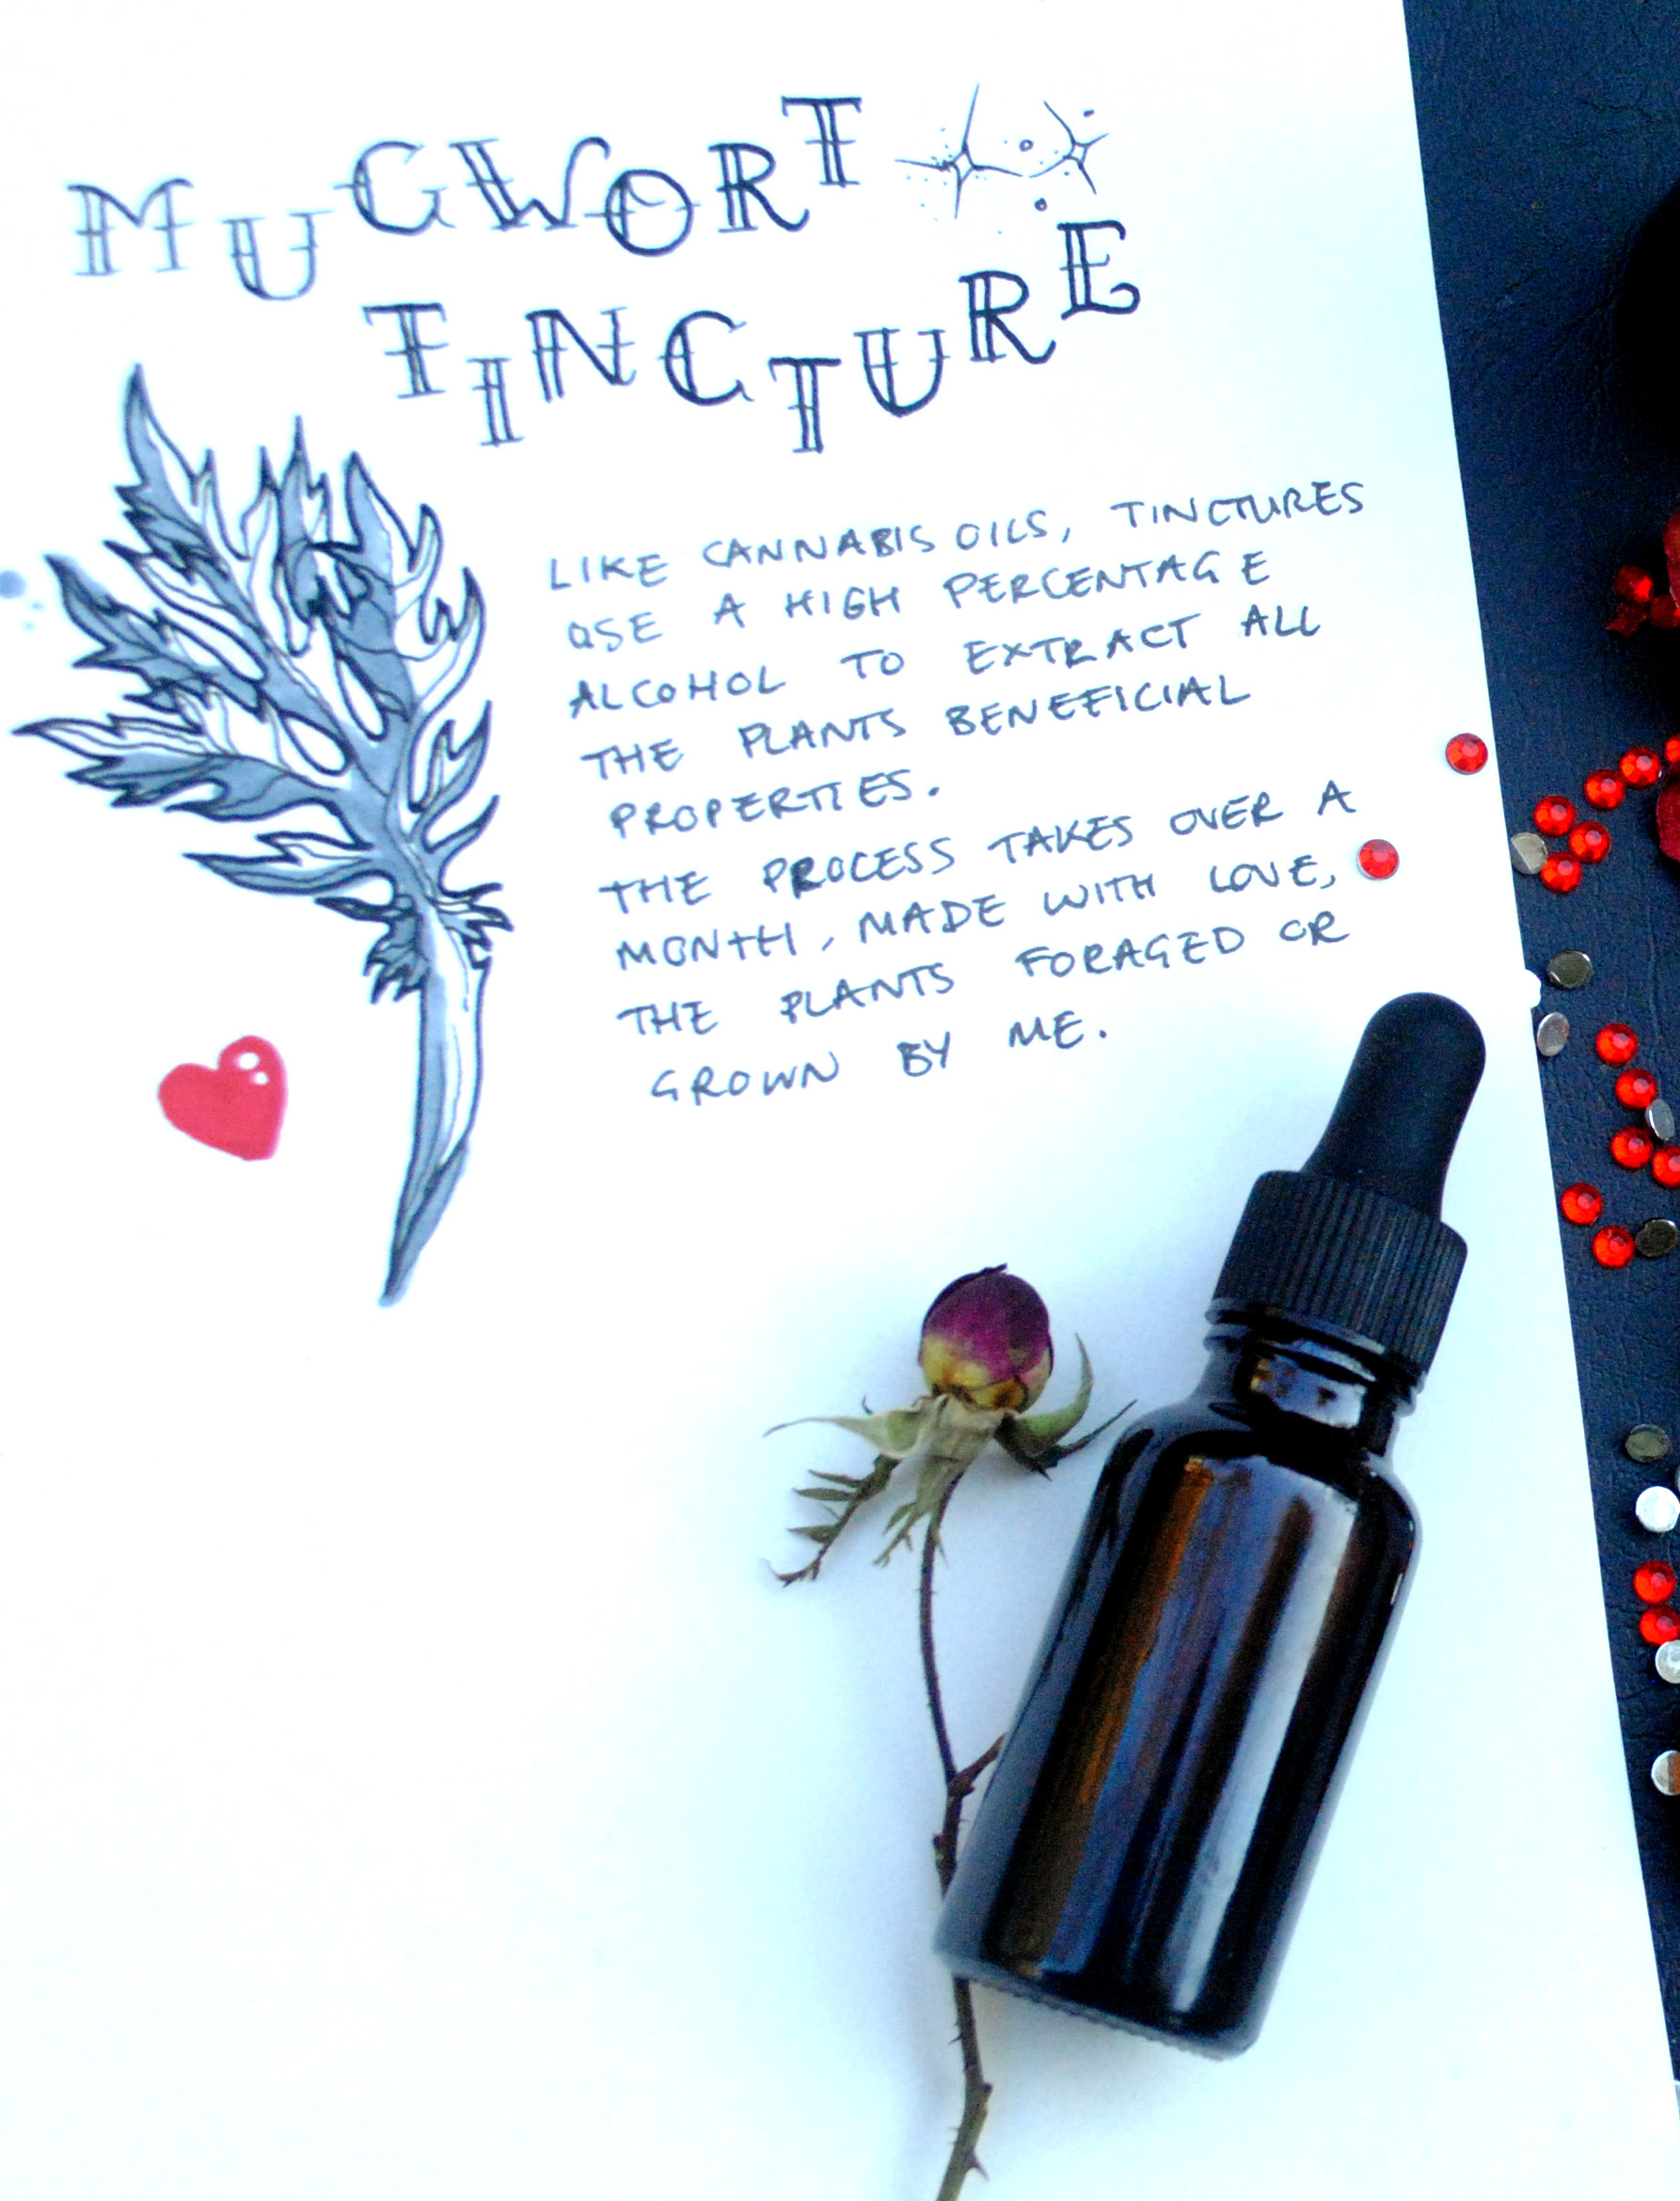 MUGWORT
TINCTURE
LIKE CANNABIS OILS, TINCTURES
USE A HIGH PERCENTAGE
ALCOHOL TO EXTRACT ALL
THE PLANTS BENEFICIAL
PROPERTIES.
THE PROCESS TAKES OVER A
MONTH, MADE WITH LOVE,
THE PLANTS FORAGED OR
GROWN BY ME.